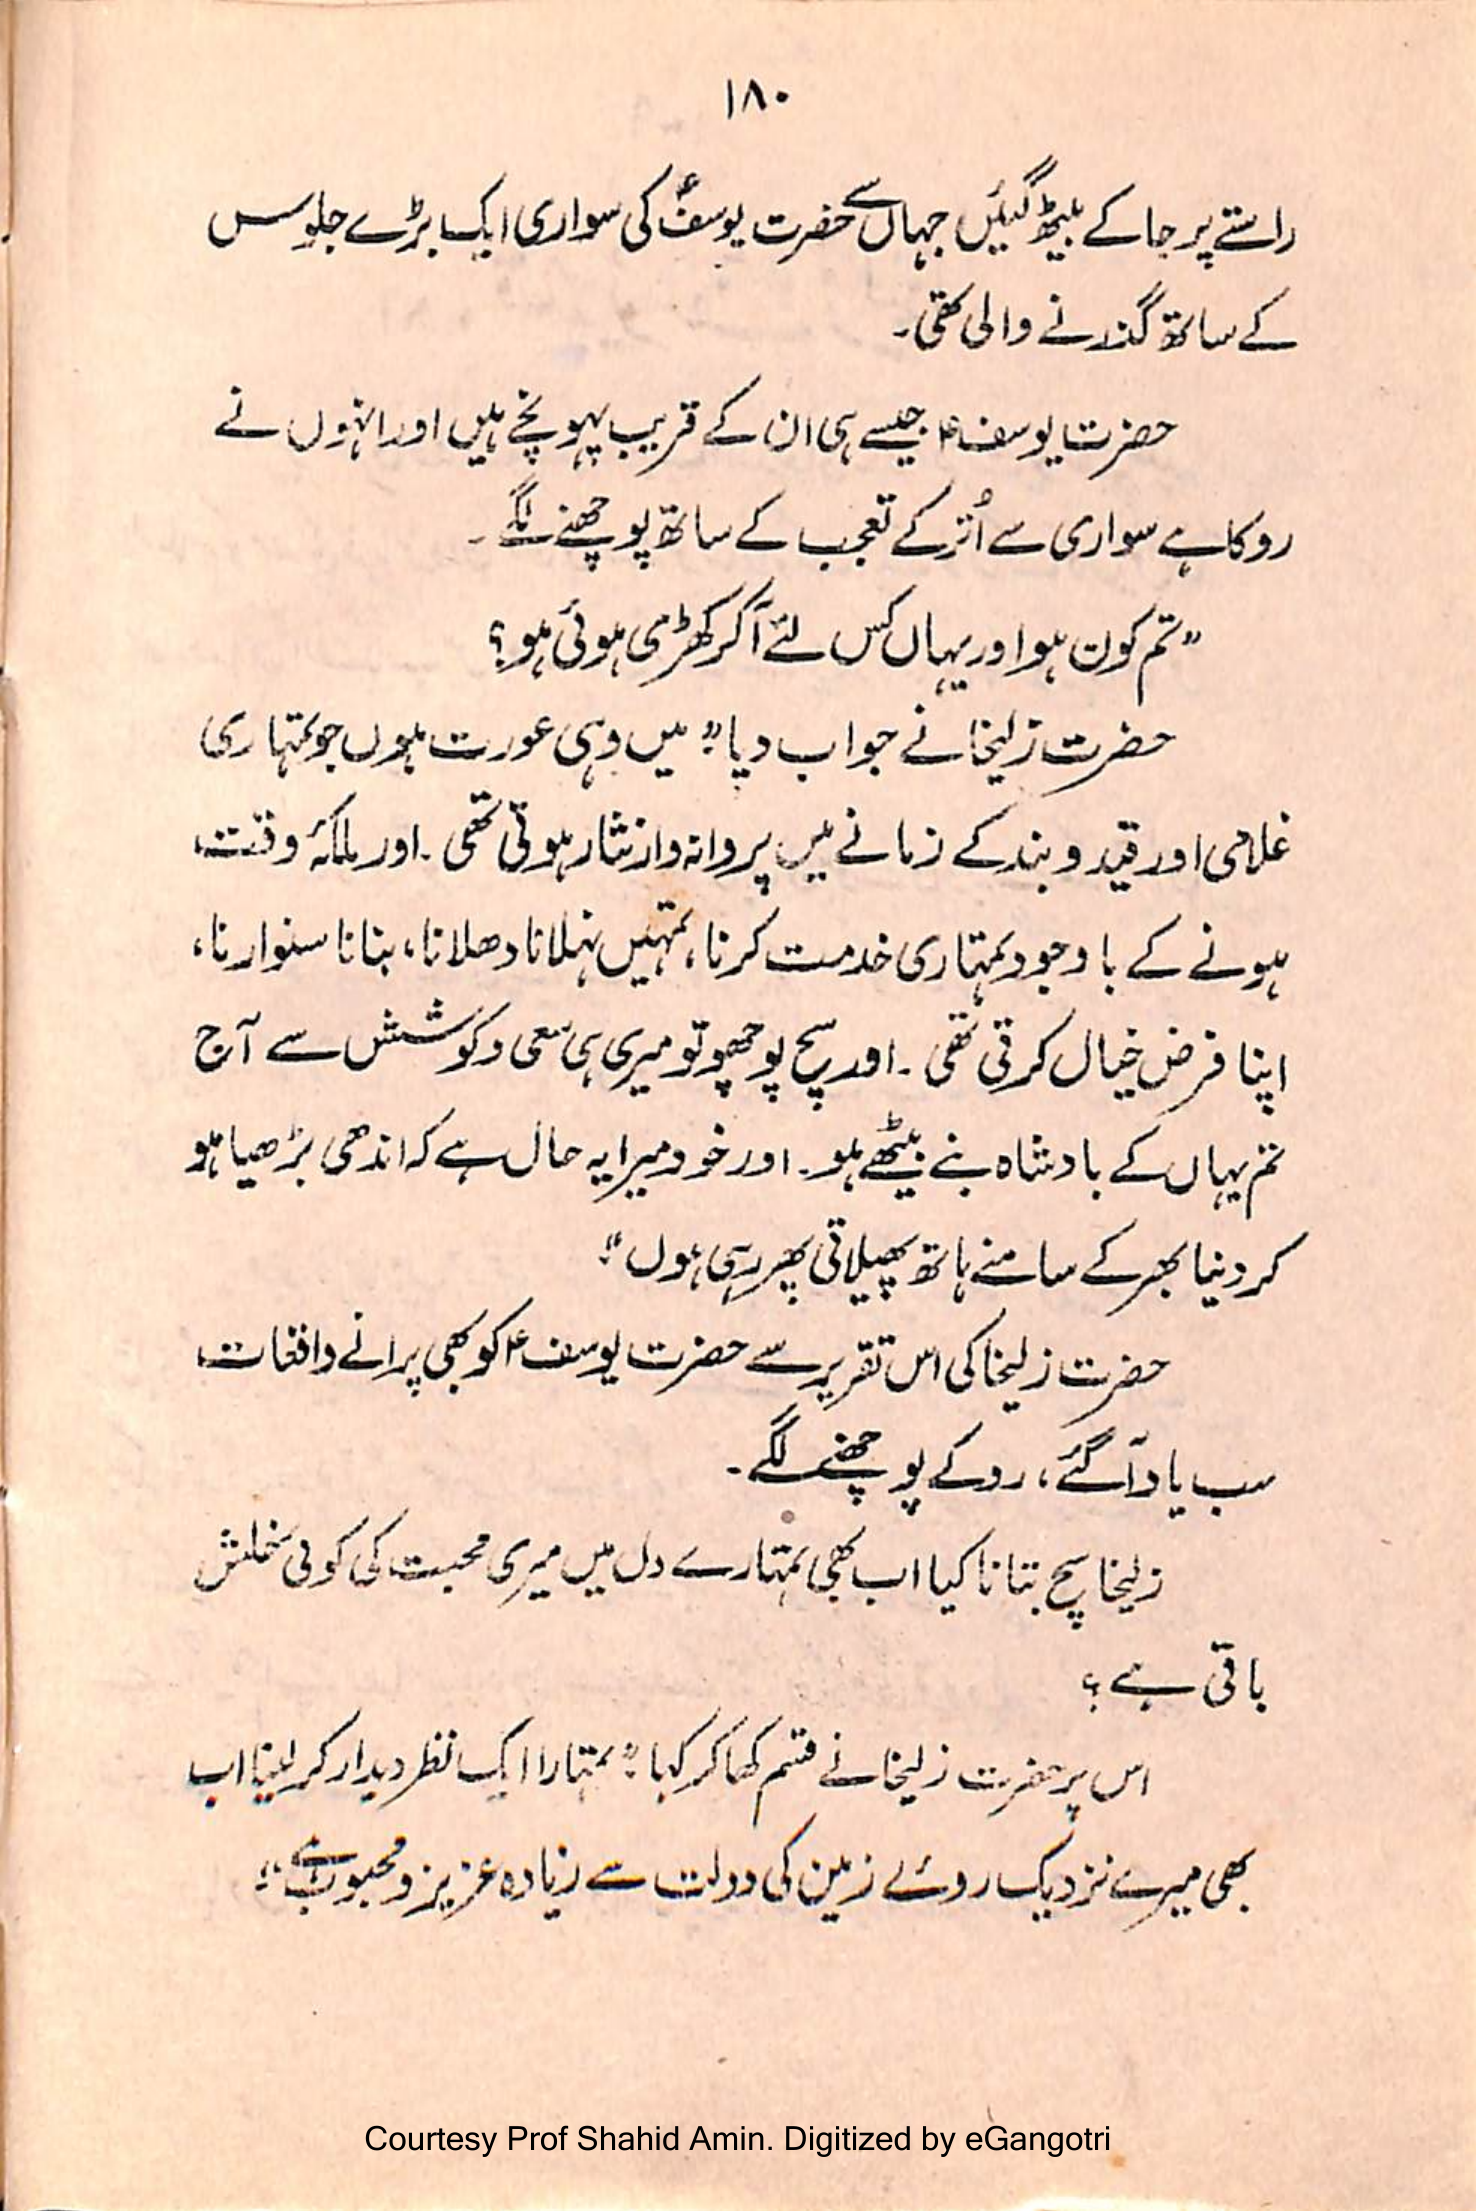 ۱۸۰
راستے پر جا کے بیٹھ گئیں جہاں سے حضرت یوسفؑ کی سواری ایک بڑے جلوس
کے ساتھ گذرنے والی تھی۔
حضرت یوسف ؑ جیسے ہی ان کے قریب پہونچے ہیں اور انہوں نے
روکا ہے سواری سے اُتر کے تعجب کے ساتھ پوچھنے لگے۔
"تم کون ہو اور یہاں کس لئے آ کر کھڑی ہوئی ہو؟
حضرت زلیخا نے جواب دیا" میں وہی عورت ہوں جو تمہاری
غلامی اور قید و بند کے زمانے میں پروانہ وار نثار ہوتی تھی ۔ اور ملکۂ وقت
ہونے کے باوجود تمہاری خدمت کرنا، تمہیں نہلانا دھلانا، بنانا سنوارنا،
اپنا فرض خیال کرتی تھی ۔ اور سچ پوچھو تو میری ہی سعی و کوشش سے آج
تم یہاں کے بادشاہ بنے بیٹھے ہو۔ اور خود میرا یہ حال ہے کہ اندھی بڑھیا ہو
کر دنیا بھر کے سامنے ہاتھ پھیلاتی پھر رہی ہوں"
حضرت زلیخا کی اس تقریر سے حضرت یوسف ؑ کو بھی پرانے واقعات
سب یاد آ گئے، رو کے پوچھنے لگے۔
زلیخا سچ بتانا کیا اب بھی تمہارے دل میں میری محبت کی کوئی خلش
باقی ہے؟
اس پر حضرت زلیخا نے قسم کھا کر کہا" تمہارا ایک نظر دیدار کر لینا اب
بھی میرے نزدیک روئے زمین کی دولت سے زیادہ عزیز و محبوب ہے"
Courtesy Prof Shahid Amin. Digitized by eGangotri